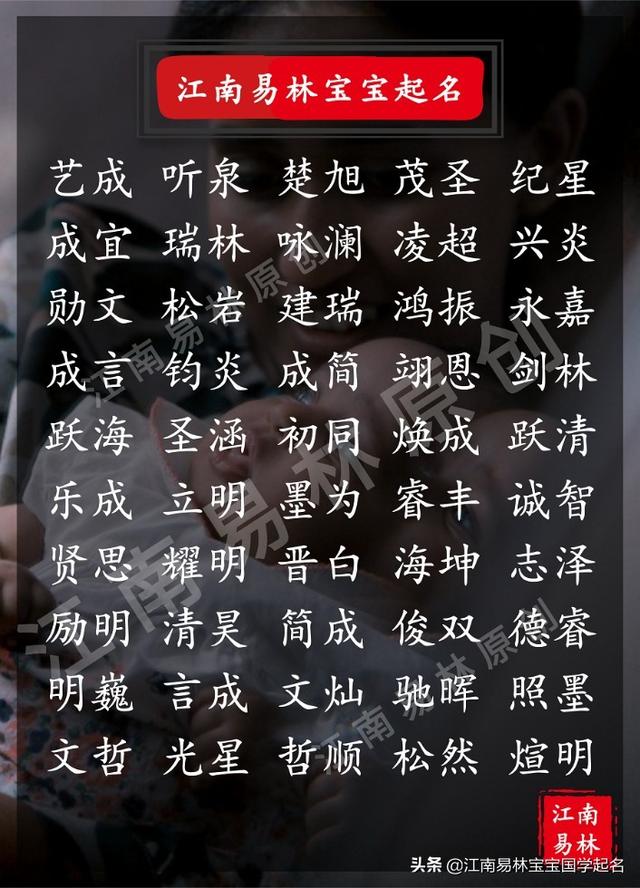 江南易林宝宝起名
艺成 听泉 楚旭 茂圣 纪星
成宜 瑞林 咏澜 凌超 兴炎
勋文 松岩 建瑞 鸿振 永嘉
成言 钧炎 成简 翊恩 剑林
跃海 圣涵 初同 焕成 跃清
乐成 立明 墨为 睿丰 诚智
贤思 耀明 晋白 海坤 志泽
励明 清昊 简成 俊双 德睿
明巍 言成 文灿 驰晖 照墨
文哲 光星 哲顺 松然 煊明
江南易林原创
江南易林原创
江南易林原创
江南
易林
头条 @江南易林宝宝国学起名